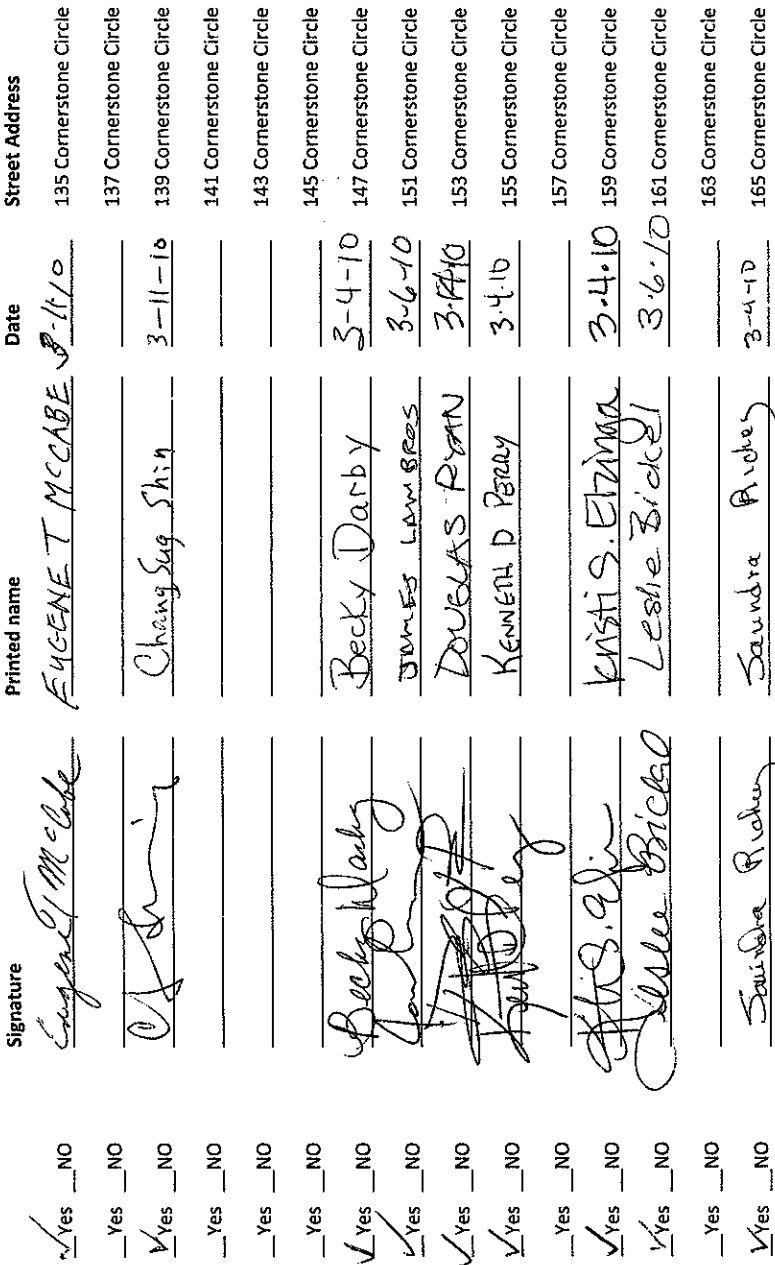 Signature Printed name Date Street Address
✓Yes __NO Eugene T McCabe EUGENE T MCCABE 3-11-10 135 Cornerstone Circle
__Yes __NO 137 Cornerstone Circle
✓Yes __NO Chang Sug Shin 3-11-10 139 Cornerstone Circle
__Yes __NO 141 Cornerstone Circle
__Yes __NO 143 Cornerstone Circle
__Yes __NO 145 Cornerstone Circle
✓Yes __NO Becky Darby Becky Darby 3-4-10 147 Cornerstone Circle
✓Yes __NO JAMES LAMBROS 3-6-10 151 Cornerstone Circle
✓Yes __NO DOUGLAS RYAN 153 Cornerstone Circle
✓Yes __NO KENNETH D PERRY 3.4.10 155 Cornerstone Circle
__Yes __NO 157 Cornerstone Circle
✓Yes __NO Kristi S. Elzinga 3.4.10 159 Cornerstone Circle
✓Yes __NO Leslie Bickel Leslie Bickel 3.6.10 161 Cornerstone Circle
__Yes __NO 163 Cornerstone Circle
✓Yes __NO Saundra Richey Saundra Richey 3-4-10 165 Cornerstone Circle